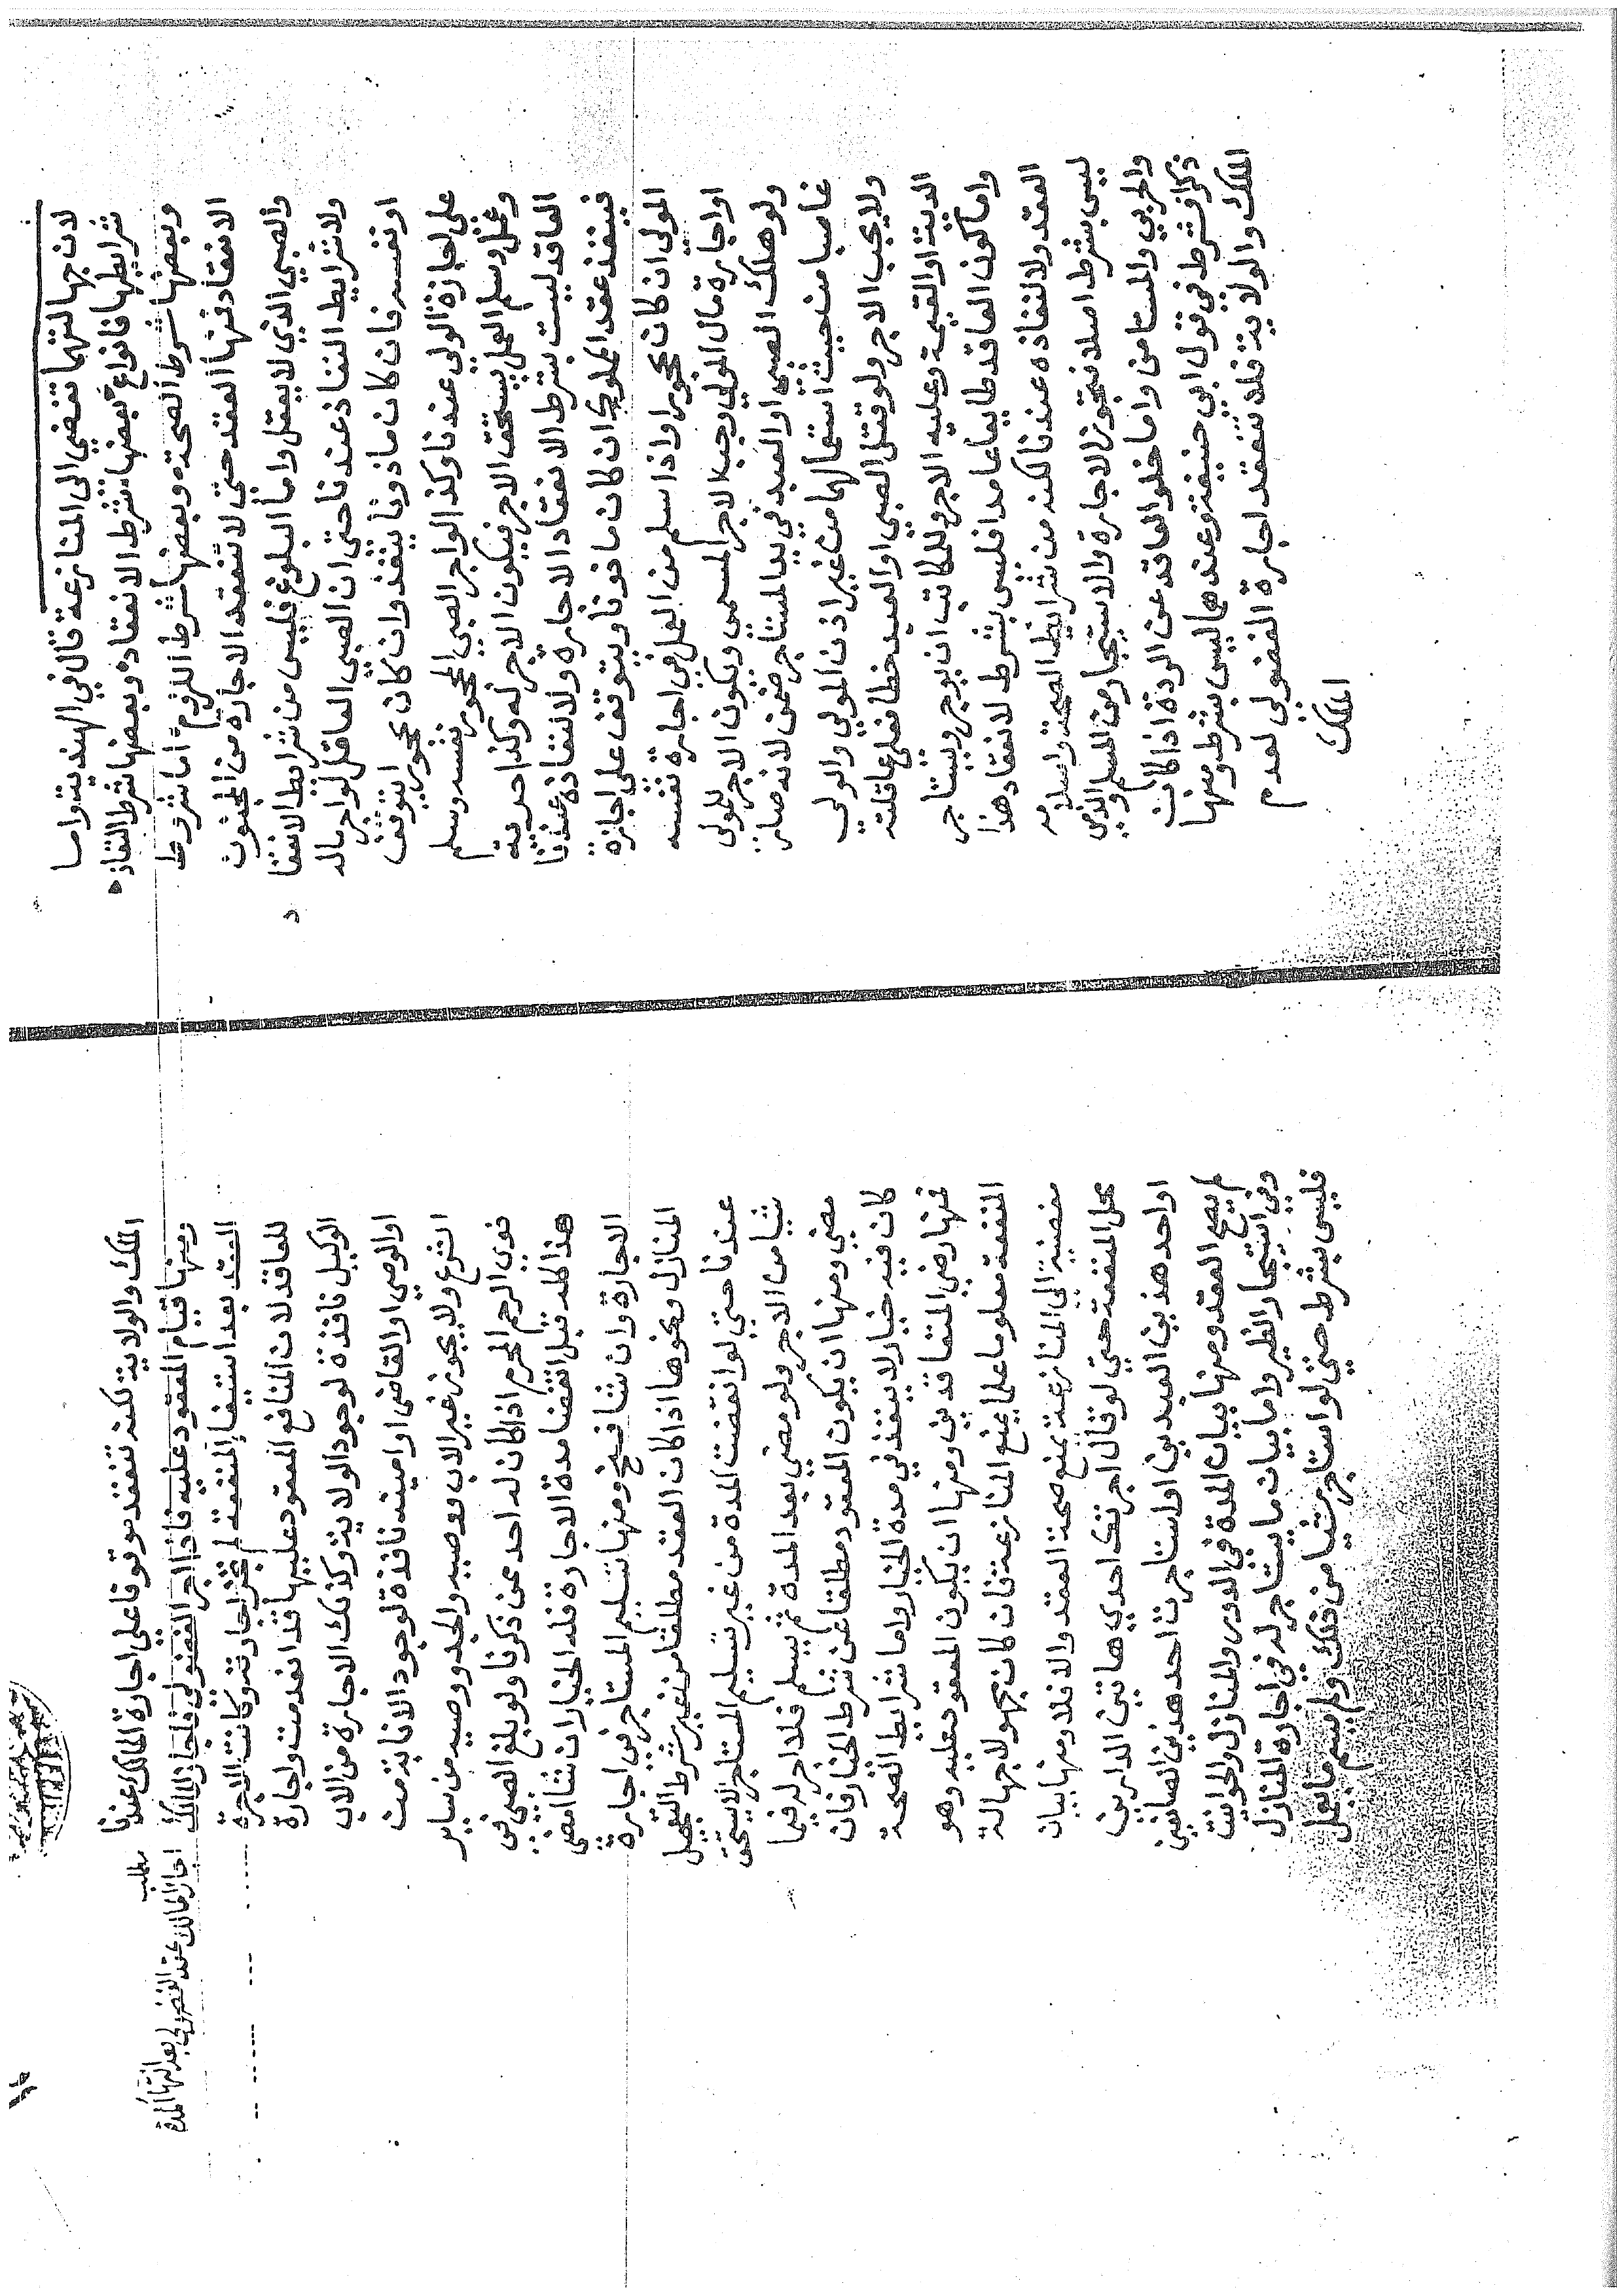 لان جهالتهما تفضي الى المنازعة قال في الهندية واما
شرايطها فانواع بعضها شرط الانعقاد وبعضها شرط النفاذ
وبعضها شرط الصحة وبعضها شرط اللزوم اما شروط
الانعقاد فمنها العقد حتى لا تنعقد الاجارة من المجنون
والصبي الذي لا يعقل واما البلوغ فليس من شرايط الانعقا
د
ولا شرايط النفاذ عندنا حتى ان الصبي العاقل لو اجر ماله
او نفسه فان كان ماذونا ينفذ وان كان محجورا يتوقف
على اجازة الولي عندنا وكذا لو اجر الصبي المحجور نفسه وسلم
وعمل وسلم العمل يستحق الاجر فيكون الاجر له وكذا حرية
العاقد ليست بشرط الانعقاد الاجارة ولا لنفاذه عندنا
فينفذ عقد المملوك ان كان ماذونا ويتوقف على اجازة
المولى ان كان محجورا واذا سلم من العمل في اجارة نفسه
او اجارة مال المولى وجب الاجر المسمى ويكون الاجر للمولى
ولو هلك الصبي او العبد في يد المستاجر ضمن لانه صار
غاصبا من حيث استعمالهما من غير اذن المولى والولي
ولا يجب الاجر ولو قتل الصبي او العبد خطا فعلى عاقلته
الدية او القيمة وعليه الاجر وللمكاتب ان يوجر ويستاجر
واما كون العاقد طايعا عامدا فليس بشرط لانعقاد هذا
العقد ولا لنفاذه عندنا لكنه من شرايط الصحة واسلامه
ليس بشرط اصلا فتجوز الاجارة والاستيجار من المسلم والذمي
والحربي والمستامن واما خلو العاقد عن الردة اذا كان
ذكرا فشرط في قول ابي حنيفة وعندهما ليس بشرط ومنها
الملك والولاية فلا تنعقد اجارة الفضولي لعدم
الملك
الملك والولاية لكنه تنعقد موقوفا على اجازة المالك عندنا
ومنها قيام المعقود عليه فاذا اجر الفضولي فاجاز المالك
العقد بعد استيفا المنفعة لم تجز اجازته وكانت الاجرة
للعاقد لان المنافع المعقود عليها قد انعدمت واجارة
الوكيل نافذة لوجود الولاية وكذلك الاجارة من الاب
او الوصي او القاضي او امينه نافذة لوجود الانابة من
الشرع ولا يجوز غير الاب ووصيه والجد ووصيه من ساير
ذوي الرحم المحرم اذا كان له احد من ذكرنا ولو بلغ الصبي في
هذا كله قبل انقضا مدة الاجارة فله الخيار ان شا امضى
الاجارة وان شا فسخ ومنها تسليم المستاجر في اجارة
المنازل ونحوها اذا كان العقد مطلقا من غير شرط التعجيل
عندنا حتى لو انقضت المدة من غير تسليم المستاجر لا يستحق
شيا من الاجر ولو مضى بعد المدة ثم يسلم فلا اجر له فيما
مضى ومنها ان يكون العقود مطلقا عن شرط الخيار فان
كان فيه خيار لا ينفذ في مدة الخيار واما شرايط الصحة
فمنها رضى المتعاقدين ومنها ان يكون المعقود عليه وهو
المنفعة معلوما علما يمنع المنازعة فان كان مجهولا جهالة
مفضية الى المنازعة يمنع صحة العقد والا فلا ومنها بيان
محل المنفعة حتى لو قال اجرتك احدي هاتين الدارين
او احد هذين العبدين او استاجرت احد هذين الصانعين
لم يصح العقد ومنها بيان المدة في الدور والمنازل والحوانيت
وفي استيجار الظير واما بيان ما يستاجر له في اجارة المنازل
فليس بشرط حتى لو استاجر شيا من ذلك ولم يسم ما يعمل
مطلب
اجاز المالك عقد الفضولي بعد انتها المدة